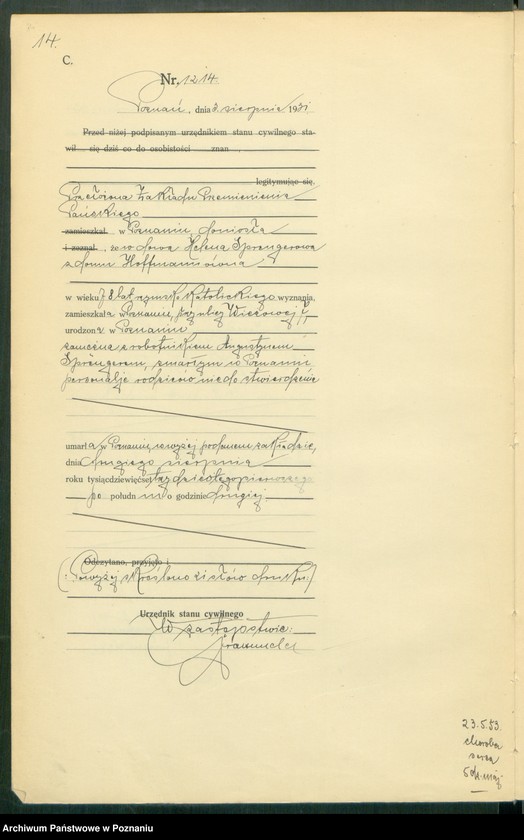 14.
C.
Nr. 1214.
Poznań, dnia 3. sierpnia 1931
Przed niżej podpisanym urzędnikiem stanu cywilnego sta-
wił się dziś co do osobistości znan
legitymując się.
Przełożona Zakładu Przemienienia
Pańskiego
zamieszkał w Poznaniu, doniosła
i zeznał, że wdowa Helena Sprengerowa
z domu Hoffmannówna
w wieku 78 lat rzymsko katolickiego wyznania,
zamieszkała w Poznaniu, przy ulicy Wieżowej
urodzona w Poznaniu
zamężna z robotnikiem Augustynem
Sprengerem, zmarłym w Poznaniu
personalje rodziców nie do stwierdzenia
umarła w Poznaniu, w wyżej podanem zakładzie,
dnia drugiego sierpnia
roku tysiącdziewięćset trzydziestego pierwszego
po południu o godzinie drugiej.
Odczytano, przyjęto i
(Powyżej skreślono słów druku)
Urzędnik stanu cywilnego
W zastępstwie:
23.5.53.
choroba
serca
Archiwum Państwowe w Poznaniu